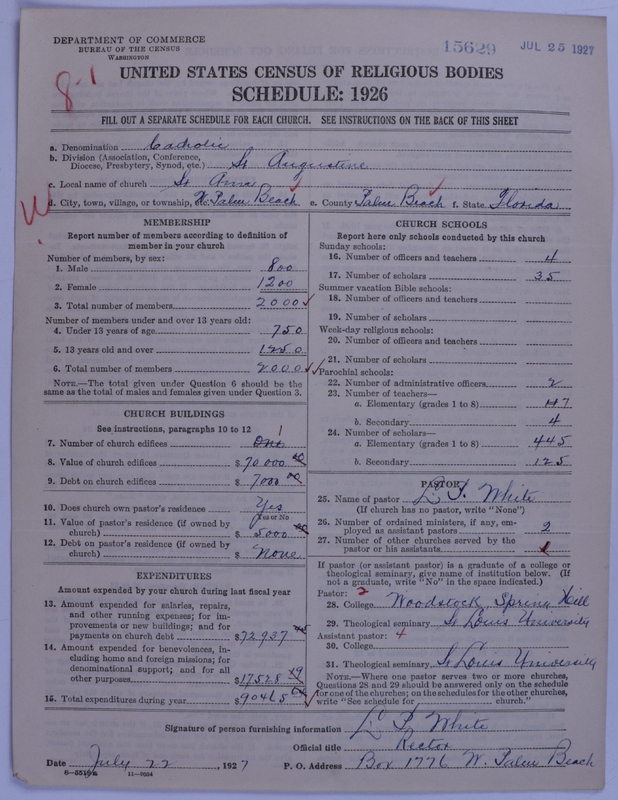 DEPARTMENT OF COMMERCE
BUREAU OF THE CENSUS
WASHINGTON
15629 JUL 25 1927
8-1
UNITED STATES CENSUS OF RELIGIOUS BODIES
SCHEDULE: 1926
FILL OUT A SEPARATE SCHEDULE FOR EACH CHURCH. SEE INSTRUCTIONS ON THE BACK OF THIS SHEET
a. Denomination Catholic
b. Division (Association, Conference, Diocese, Presbytery, Synod, etc.) St Augustine
c. Local name of church St Anns
d. City, town, village, or township, etc. W. Palm Beach e. County Palm Beach f. State Florida
MEMBERSHIP
Report number of members according to definition of
member in your church
Number of members, by sex:
1. Male 800
2. Female 1200
3. Total number of members 2000
Number of members under and over 13 years old:
4. Under 13 years of age 750
5. 13 years old and over 1250
6. Total number of members 2000
NOTE.—The total given under Question 6 should be
same as the total of males and females given under Question 3.
CHURCH BUILDINGS
See instructions, paragraphs 10 to 12
7. Number of church edifices One 1
8. Value of church edifices $ 70000 00
9. Debt on church edifices $ 7000 00
10. Does church own pastor's residence? Yes
Yes or No
11. Value of pastor's residence (if owned by
church) $ 5000 00
12. Debt on pastor's residence (if owned by
church) $ None
EXPENDITURES
Amount expended by your church during last fiscal year
13. Amount expended for salaries, repairs,
and other running expenses; for im-
provements or new buildings; and for
payments on church debt $ 72937
14. Amount expended for benevolences, in-
cluding home and foreign missions; for
denominational support; and for all
other purposes $ 17528 19
15. Total expenditures during year $ 90465
CHURCH SCHOOLS
Report here only schools conducted by this church
Sunday schools:
16. Number of officers and teachers 4
17. Number of scholars 35
Summer vacation Bible schools:
18. Number of officers and teachers
19. Number of scholars
Week-day religious schools:
20. Number of officers and teachers
21. Number of scholars
Parochial schools:
22. Number of administrative officers 2
23. Number of teachers—
a. Elementary (grades 1 to 8) 7
b. Secondary 4
24. Number of scholars—
a. Elementary (grades 1 to 8) 445
b. Secondary 125
PASTOR
25. Name of pastor L. P. White
(If church has no pastor, write "None")
26. Number of ordained ministers, if any, em-
ployed as assistant pastors 2
27. Number of other churches served by the
pastor or his assistants 1
If pastor (or assistant pastor) is a graduate of a college or
theological seminary, give name of institution below. (If
not a graduate, write "No" in the space indicated.)
Pastor: 2
28. College Woodstock Spring Hill
29. Theological seminary St Louis University
Assistant pastor: 4
30. College
31. Theological seminary St Louis University
NOTE.—Where one pastor serves two or more churches,
Questions 28 and 29 should be answered only on the schedule
for one of the churches; on the schedules for the other churches,
write "See schedule for church."
Signature of person furnishing information L P White
Official title Rector
Date July 22, 1927 P. O. Address Box 1776 W. Palm Beach
11—9054